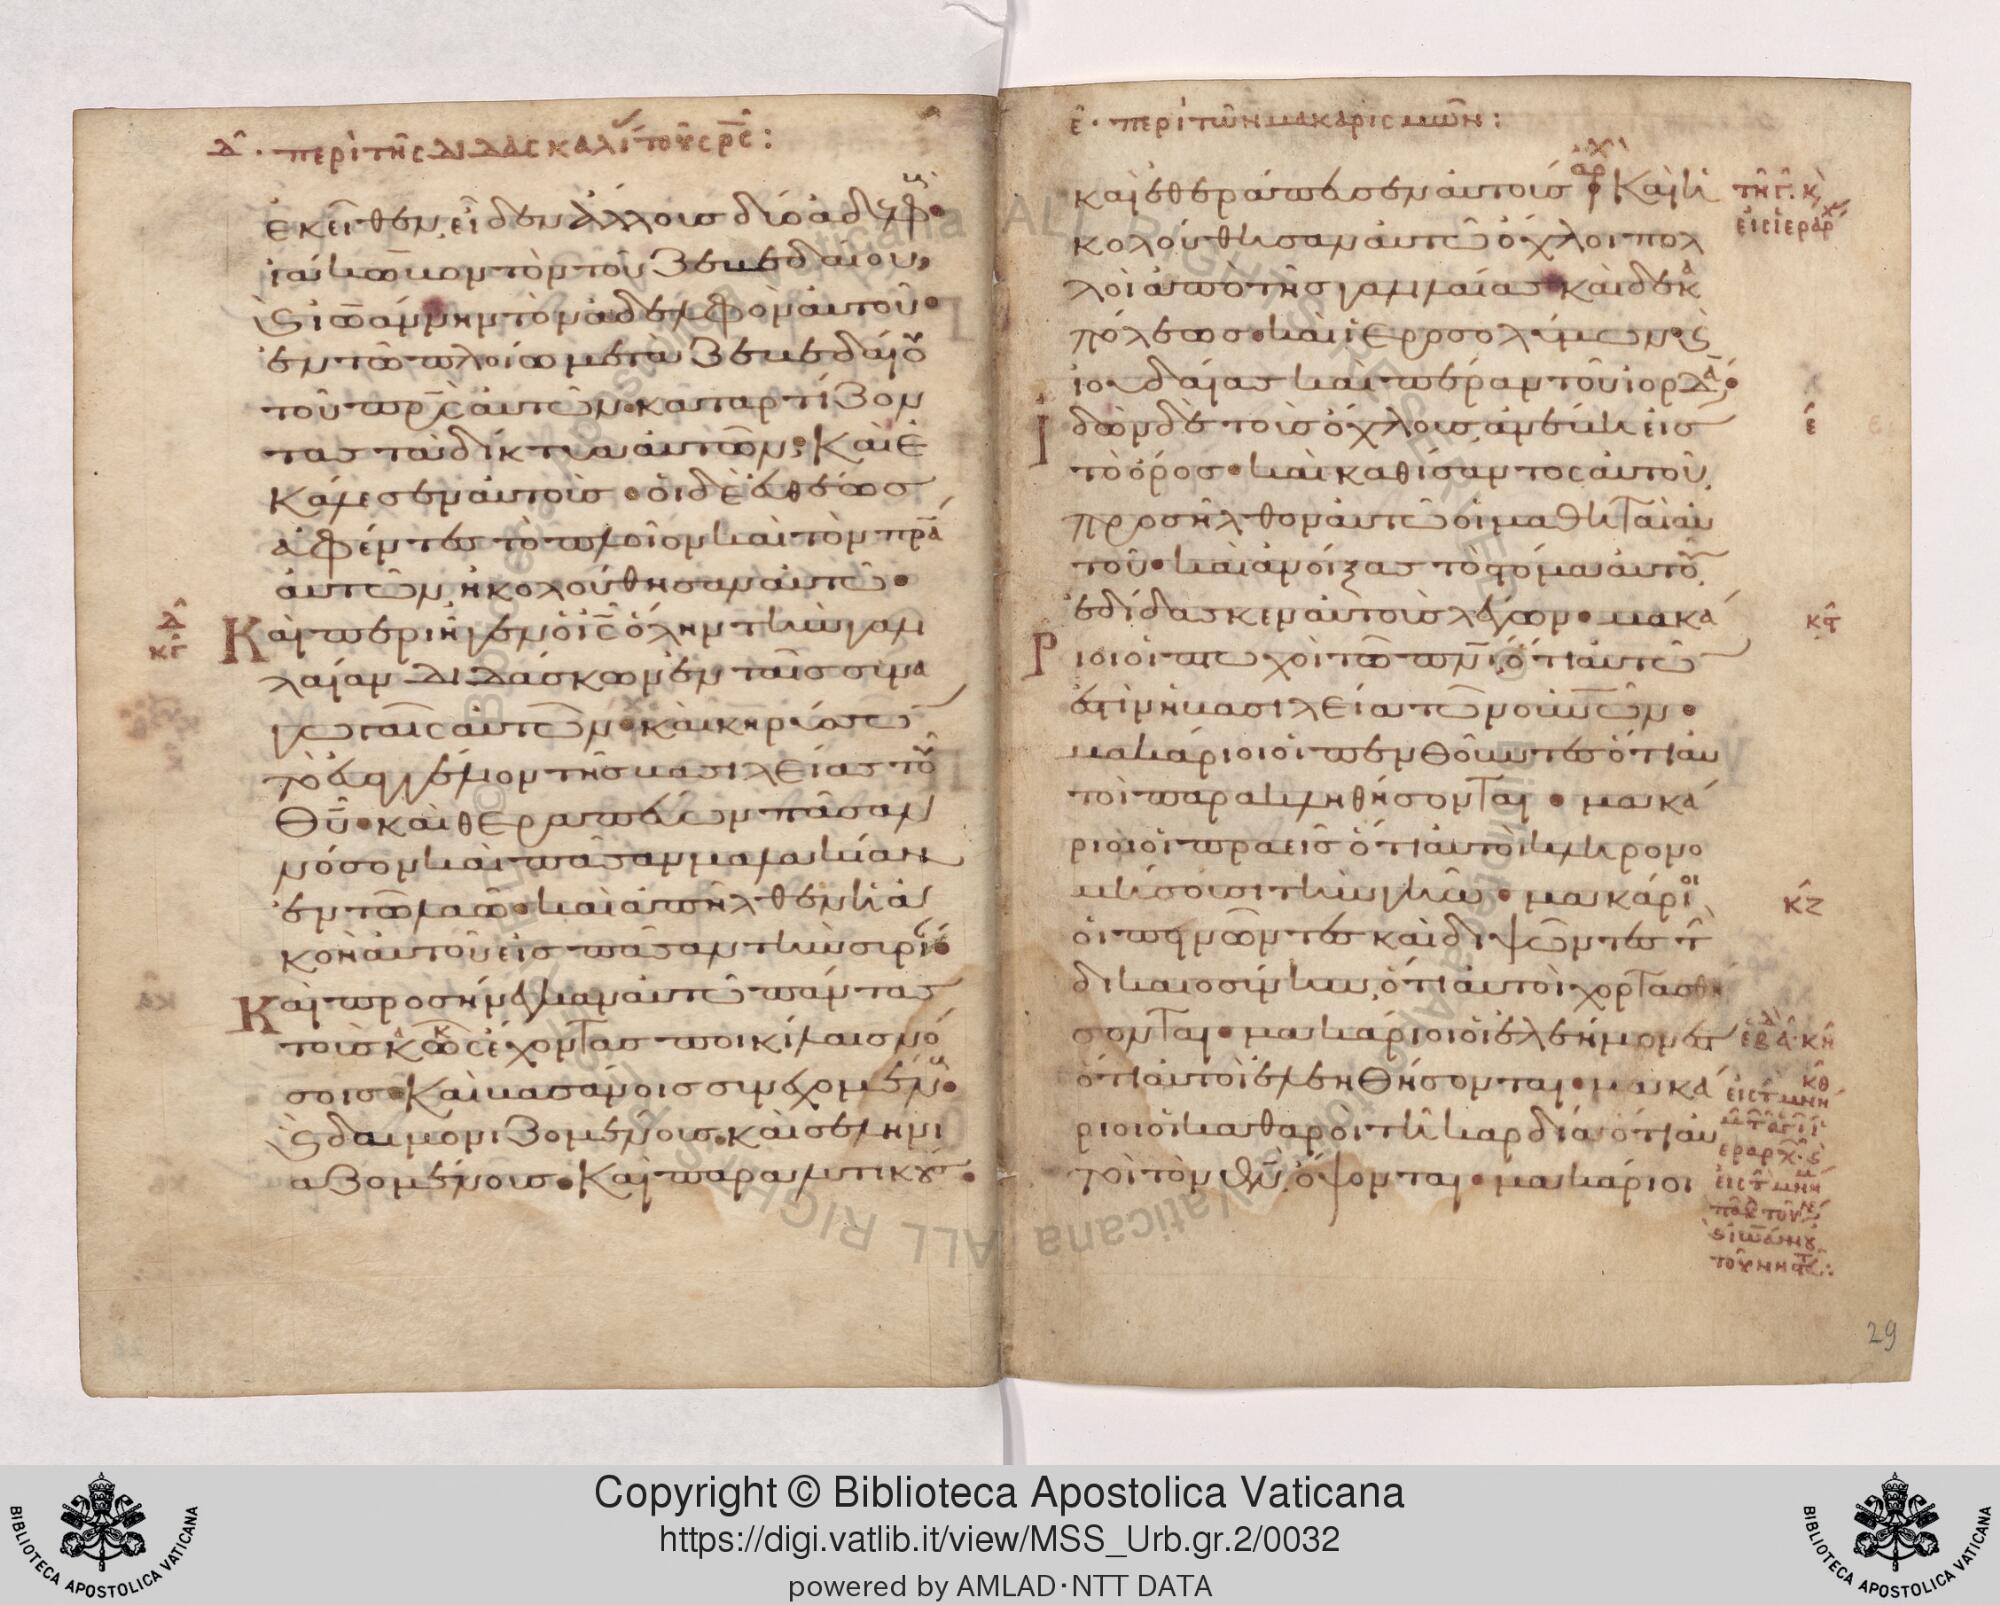 δ̂. περὶ τῆς διδασκαλί τοῦ ς̅ρ̅ς:
ἐκεῖθεν, εἶδεν ἄλλους δύο ἀδελφ·
ἰάκωβον τὸν τοῦ ζεβεδαίου,
ϛ ἰωάννην τὸν ἀδελφὸν αὐτοῦ·
ἐν τῶ πλοίω μετὰ ζεβεδαίου
τοῦ πρ̅ς αὐτῶν· καταρτίζον
τας τὰ δίκτυα αὐτῶν· Καὶ ἐ
κάλεσεν αὐτούς· οἱ δὲ εὐθέως
ἀφέντες τὸ πλοῖον καὶ τὸν πρ̅α
αὐτῶν ἠκολούθησαν αὐτῶ·
δ̂
κγ
Καὶ περιῆγεν ὁ ι̅ς̅ ὅλην τὴν γαλ
λαίαν διδάσκων ἐν ταῖς συνα
γωγαῖς αὐτῶν· καὶ κηρύσσω
τὸ εὐαγγέλιον τῆς βασιλείας τοῦ
θ̅υ̅· καὶ θεραπεύων πᾶσαν
νόσον καὶ πᾶσαν μαλακίαν
ἐν τῶ λαῶ· καὶ ἀπῆλθεν ἡ ἀ
κοὴ αὐτοῦ εἰς πᾶσαν τὴν συρί·
Καὶ προσήνεγκαν αὐτῶ πάντας
τοὺς κακῶς ἔχοντας ποικίλαις νό
σοις· Καὶ βασάνοις συνεχομέν·
ϛ δαιμονιζομένους· καὶ σεληνι
αζομένους· Καὶ παραλυτικούς·
ε̂. περὶ τῶν μακαρισμῶν:
καὶ ἐθεράπευσεν αὐτούς ἀρχ Καὶ ἠ
τῆ γ̂. κ,
εἰς ἱεράρχ
κολούθησαν αὐτῶ ὄχλοι πολ
λοὶ ἀπὸ τῆς γαλιλαίας· καὶ δεκα
πόλεως· καὶ ἱεροσολύμων· ϛ
ἰουδαίας καὶ πέραν τοῦ ἰορδα·
Ἰδὼν δὲ τοὺς ὄχλους, ἀνέβη εἰς
ε̂
τὸ ὄρος· καὶ καθίσαντος αὐτοῦ,
προσῆλθον αὐτῶ οἱ μαθηταὶ αὐ
τοῦ· καὶ ἀνοίξας τὸ στόμα αὐτοῦ,
ἐδίδασκεν αὐτοὺς λέγων· μακά
κϛ
ριοι οἱ πτωχοὶ τῶ πν̅ι, ὅτι αὐτῶ
ἐστὶν ἡ βασιλεία τῶν οὐ̅νω̅ν·
μακάριοι οἱ πενθοῦντες ὅτι αὐ
τοὶ παρακληθήσονται· μακά
ριοι οἱ πραεῖς ὅτι αὐτοὶ κληρονο
μήσουσι τὴν γῆν· μακάριοι
κζ
οἱ πεινῶντες καὶ διψῶντες τ
δικαιοσύνην, ὅτι αὐτοὶ χορτασθή
σονται· μακάριοι οἱ ἐλεήμονες
κη
ὅτι αὐτοὶ ἐλεηθήσονται· μακά
κθ
ριοι οἱ καθαροὶ τῆ καρδία· ὅτι αὐ
τοὶ τὸν θ̅ν̅, ὄψονται· μακάριοι
ϛ ἰωάννου
τοῦ νηστ:
29
Copyright © Biblioteca Apostolica Vaticana
https://digi.vatlib.it/view/MSS_Urb.gr.2/0032
powered by AMLAD·NTT DATA
BIBLIOTECA APOSTOLICA VATICANA
BIBLIOTECA APOSTOLICA VATICANA